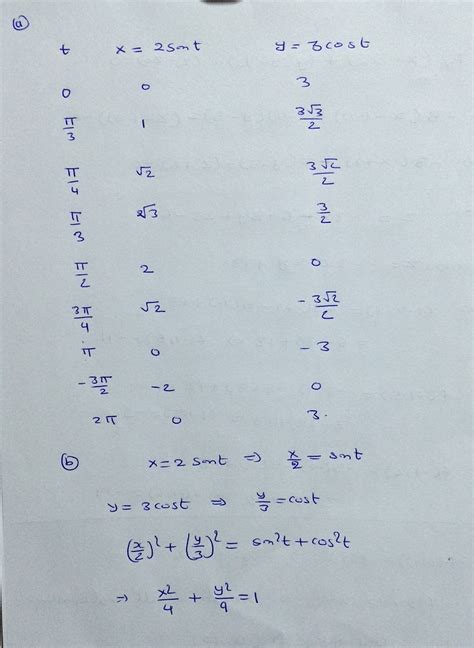 (a)
t x = 2sint y = 3cost
0 0 3
π/3 1 3√3/2
π/4 √2 3√2/2
π/3 2√3 3/2
π/2 2 0
3π/4 √2 -3√2/2
π 0 -3
-3π/2 -2 0
2π 0 3.
(b) x = 2 sint ⇒ x/2 = sint
y = 3cost ⇒ y/3 = cost
(x/2)² + (y/3)² = sin²t + cos²t
⇒ x²/4 + y²/9 = 1